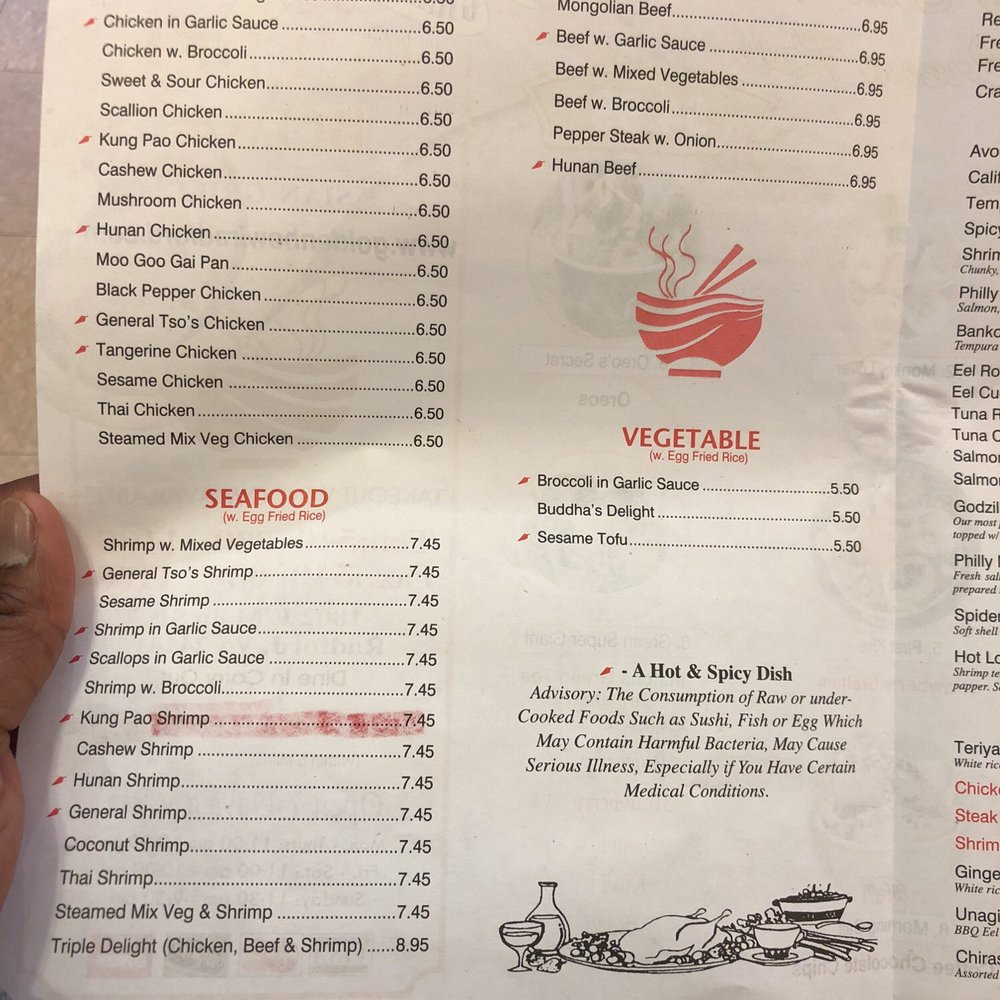 Chicken in Garlic Sauce 6.50
Chicken w. Broccoli 6.50
Sweet & Sour Chicken 6.50
Scallion Chicken 6.50
Kung Pao Chicken 6.50
Cashew Chicken 6.50
Mushroom Chicken 6.50
Hunan Chicken 6.50
Moo Goo Gai Pan 6.50
Black Pepper Chicken 6.50
General Tso's Chicken 6.50
Tangerine Chicken 6.50
Sesame Chicken 6.50
Thai Chicken 6.50
Steamed Mix Veg Chicken 6.50
SEAFOOD
(w. Egg Fried Rice)
Shrimp w. Mixed Vegetables 7.45
General Tso's Shrimp 7.45
Sesame Shrimp 7.45
Shrimp in Garlic Sauce 7.45
Scallops in Garlic Sauce 7.45
Shrimp w. Broccoli 7.45
Kung Pao Shrimp 7.45
Cashew Shrimp 7.45
Hunan Shrimp 7.45
General Shrimp 7.45
Coconut Shrimp 7.45
Thai Shrimp 7.45
Steamed Mix Veg & Shrimp 7.45
Triple Delight (Chicken, Beef & Shrimp) 8.95
Mongolian Beef 6.95
Beef w. Garlic Sauce 6.95
Beef w. Mixed Vegetables 6.95
Beef w. Broccoli 6.95
Pepper Steak w. Onion 6.95
Hunan Beef 6.95
VEGETABLE
(w. Egg Fried Rice)
Broccoli in Garlic Sauce 5.50
Buddha's Delight 5.50
Sesame Tofu 5.50
- A Hot & Spicy Dish
Advisory: The Consumption of Raw or under-
Cooked Foods Such as Sushi, Fish or Egg Which
May Contain Harmful Bacteria, May Cause
Serious Illness, Especially if You Have Certain
Medical Conditions.
Re
Fre
Fre
Cra
Avo
Calif
Tem
Spicy
Shrim
Chunky,
Philly
Salmon,
Banko
Tempura
Eel Ro
Eel Cu
Tuna R
Tuna C
Salmon
Salmon
Godzil
Our most
topped w/
Philly
Fresh sal
prepared
Spider
Soft shell
Hot Lo
Shrimp te
papper. S
Teriya
White rice
Chicke
Steak
Shrim
Ginge
White ric
Unagi
BBQ Eel
Chiras
Assorted